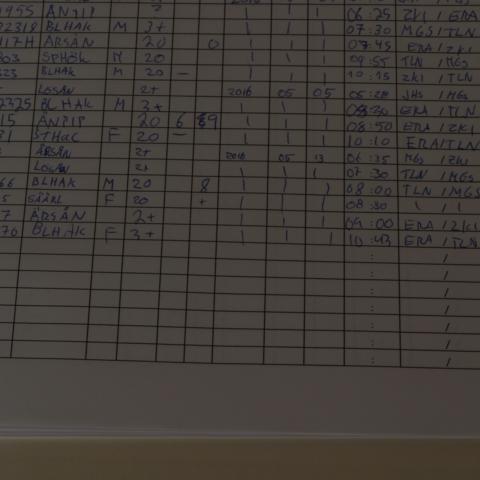 1955 ANTIP 2 | | | 06:25 ZKI / ERA
92318 BLHAK M 3+ | | | 07:30 MGS / TLN
917H ÄRSÅN 20 0 | | | 07:45 ERA / ZKI
903 SPHÖK M 20 | | | 09:55 TLN / MGS
323 BLHAK M 20 – | | | 10:15 ZKI / TLN
LOSÅN 2+ 2016 05 05 05:20 JHS / MGS
2325 BLHAK M 3+ | | 08:30 ERA / TLN
15 ANPIP 20 6 89 | | | 08:50 ERA / ZKI
31 STHAC F 20 – | | | 10:10 ERA / TLN
ÄRSÅN 2+ 2016 05 13 06:35 MGS / ZKI
LOSÅN 2+ | | | 07:30 TLN / MGS
66 BLHAK M 20 8 | | | 08:00 TLN / MGS
5 SÄÄRL F 20 + | | | 08:30 \ \
7 ÄRSÅN 2+ | | | 09:00 ERA / ZKI
70 BLHAK F 3+ | | | 10:43 ERA / TLN
: /
: /
: /
: /
: /
: /